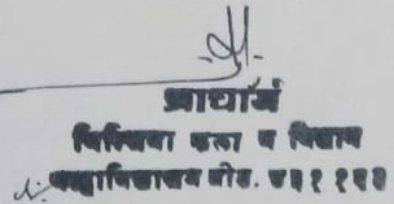 प्राचार्य
मिल्लिया कला व विज्ञान
महाविद्यालय बीड. ४३१ १२२